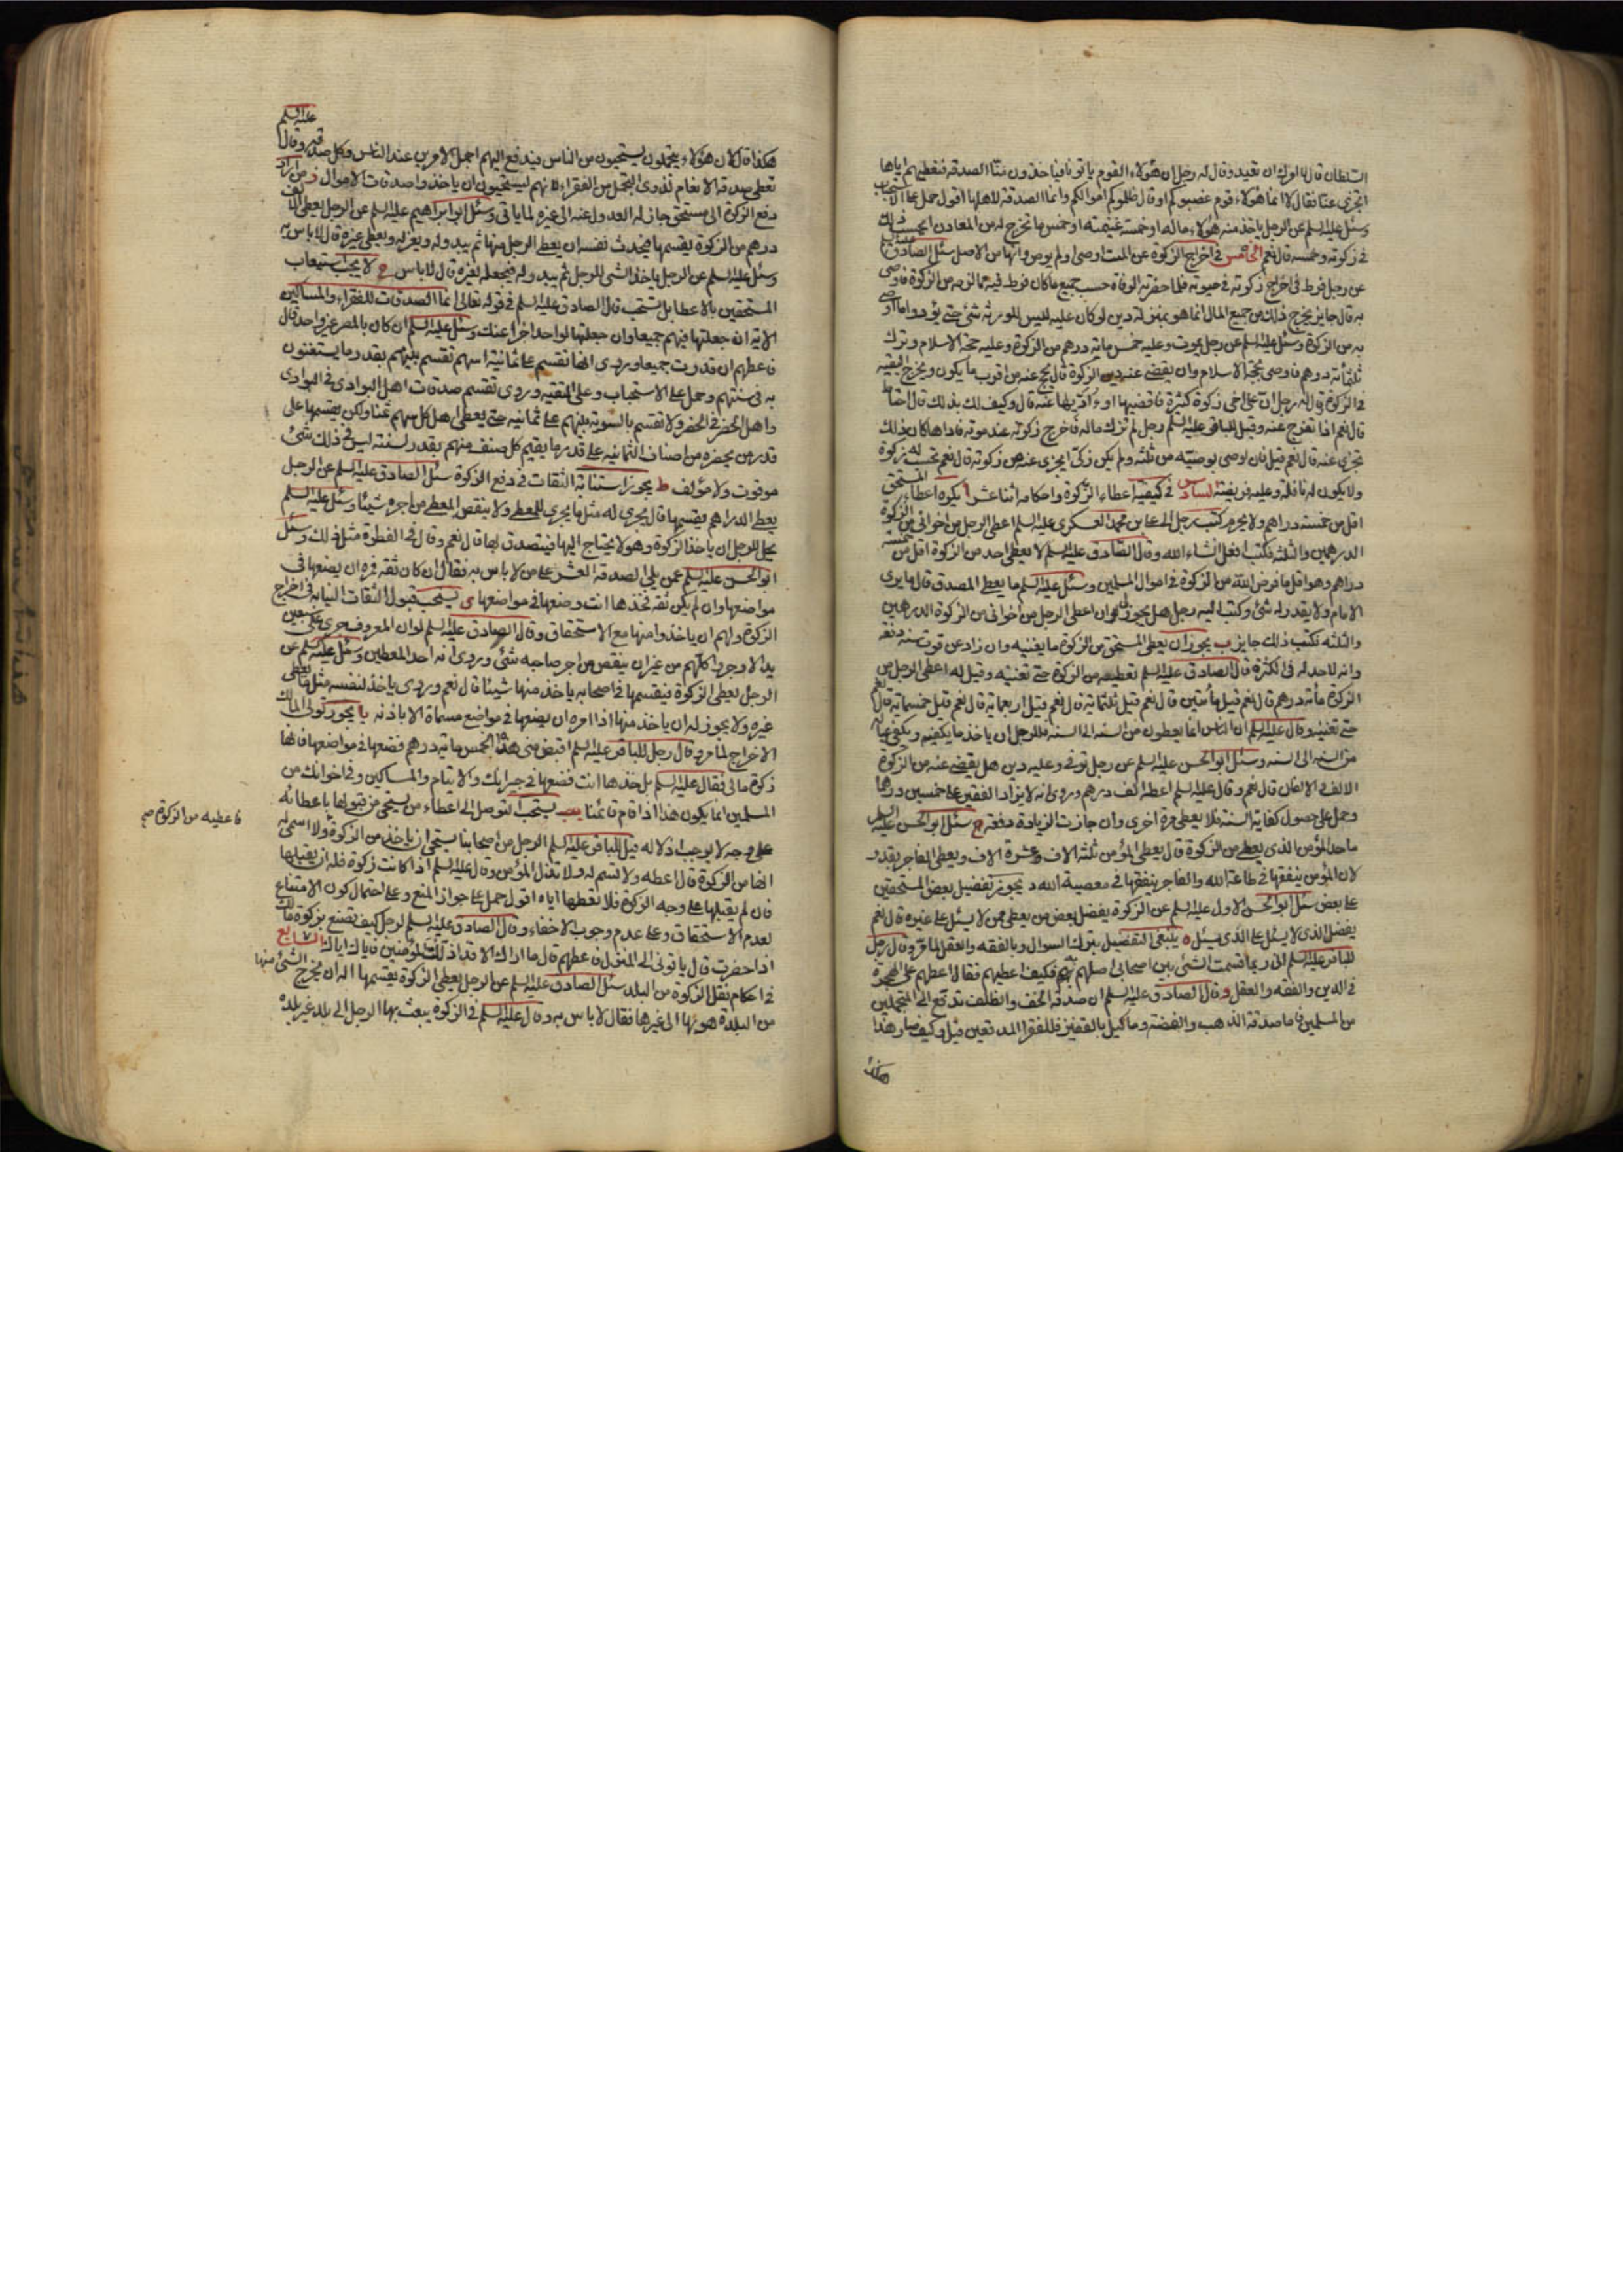 السلطان قال لا اورك ان تعيد وقال له رجل ان هؤلاء القوم ياتونا فياخذون منا الصدقة فنعطيهم اياها
اتجزي عنا فقال لا انما هؤلاء قوم غصبوكم او قال ظلموكم اموالكم وانما الصدقة لاهلها اقول حمل على الاستحباب
وسئل عليه السلم عن الرجل ياخذ منه هؤلاء ماله او خمس غنيمته او خمس ما تخرج له من المعادن ايحسب ذلك
في زكوته وخمسه قال نعم الخامس في اخراج الزكوة عن الميت اوصى او لم يوص وانها من الاصل سئل الصادق
عن رجل فرط في اخراج زكوته في حيوته فلما حضرته الوفاة حسب جميع ما كان فرط فيه مما لزمه من الزكوة فاوصى
به قال جايز يخرج ذلك من جميع المال انما هو بمنزلة دين لو كان عليه ليس للورثة شئ حتى يؤدوا ما اوصى
به من الزكوة وسئل عليه السلم عن رجل يموت وعليه خمس مائة درهم من الزكوة وعليه حجة الاسلام وترك
ثلثمائة درهم فاوصى بحجة الاسلام وان يقضى عنه دين الزكوة قال يحج عنه من اقرب ما يكون ويخرج البقية
في الزكوة وقال له رجل ان على اخي زكوة كثيرة فاقضيها او اؤديها عنه قال وكيف لك بذلك قال احتاط
قال نعم اذا تفرج عنه وقيل للباقر عليه السلم رجل لم تزك ماله فاخرج زكوته عند موته فاداها كان ذلك
تجزي عنه قال نعم قيل فان اوصى بوصية من ثلثه ولم يكن زكى ايجزي عنه من زكوته قال نعم تحسب له زكوة
ولا يكون له نافلة وعليه فريضة السادس في كيفية اعطاء الزكوة واحكامه اثنا عشر ا يكره اعطاء المستحق
اقل من خمسة دراهم ولا يحرم كتب رجل الى علي بن محمد العسكري عليه السلم اعطى الرجل من اخواني من الزكوة
الدرهمين والثلثة فكتب افعل انشاء الله وقال الصادق عليه السلم لا يعطى احد من الزكوة اقل من خمسة
دراهم وهو اقل ما فرض الله من الزكوة في اموال المسلمين وسئل عليه السلم ما يعطى المصدق قال ما يرى
الامام ولا يقدر له شئ وكتب اليه رجل هل يجوز لي ان اعطى الرجل من اخواني من الزكوة الدرهمين
والثلثة فكتب ذلك جايز ب يجوز ان يعطى المستحق من الزكوة ما يغنيه وان زاد عن قوت سنة دفعة
وانه لا حد له في الكثرة قال الصادق عليه السلم تعطيه من الزكوة حتى تغنيه وقيل له اعطى الرجل من
الزكوة مائة درهم قال نعم قيل مأتين قال نعم قيل ثلثمائة قال نعم قيل اربعمائة قال نعم قيل خمسمائة قال نعم
حتى تغنيه وقال عليه السلم ان الناس انما يعطون من السنة الى السنة فللرجل ان ياخذ ما يكفيه ويكفي عياله
من السنة الى السنة وسئل ابو الحسن عليه السلم عن رجل توفى وعليه دين هل يقضى عنه من الزكوة
الالف والالفان قال نعم وقال عليه السلم اعطه الف درهم وروى انه لا يزاد الفقير على خمسين درهما
وحمل على حصول كفاية السنة فلا يعطى مرة اخرى وان جازت الزيادة دفعة ج سئل ابو الحسن عليه السلم
ما حد المؤمن الذي يعطى من الزكوة قال يعطى المؤمن ثلثة الاف وعشرة الاف ويعطى الفاجر بقدر
لان المؤمن ينفقها في طاعة الله والفاجر ينفقها في معصية الله د يجوز تفضيل بعض المستحقين
على بعض سئل ابو الحسن الاول عليه السلم عن الزكوة يفضل بعض من يعطى ممن لا يسئل على غيره قال نعم
يفضل الذي لا يسئل على الذي يسئل ه ينبغي التفضيل بترك السؤال وبالفقه والعقل لما مر وقال رجل
للباقر عليه السلم اني ربما قسمت الشئ بين اصحابي اصلهم به فكيف اعطيهم فقال اعطهم على الهجرة
في الدين والفقه والعقل و قال الصادق عليه السلم ان صدقة الخف والظلف تدفع الى المتجملين
من المسلمين فاما صدقة الذهب والفضة وما كيل بالقفيز فللفقراء المدقعين قيل وكيف صار هذا
هكذا
عليه السلم
هكذا قال لان هؤلاء يتجملون يستحيون من الناس فيدفع اليهم اجمل الامرين عند الناس وكل صدقه وقال
تعطى صدقة الانعام لذوى التجمل من الفقراء لانهم ليستحيون ان ياخذوا صدقات الاموال ز من اراد
دفع الزكوة الى مستحق جاز له العدول عنه الى غيره لما ياتى وسئل ابو ابراهيم عليه السلم عن الرجل يعطى الالف
درهم من الزكوة يقسمها فيحدث نفسه ان يعطى الرجل منها ثم يبدو له ويعزله ويعطى غيره قال لا باس به
وسئل عليه السلم عن الرجل ياخذ الشئ للرجل ثم يبدو له فيجعله لغيره قال لا باس ح لا يجب استيعاب
المستحقين بالاعطا بل يستحب قال الصادق عليه السلم في قوله تعالى انما الصدقات للفقراء والمساكين
الاية ان جعلتها فيهم جميعا وان جعلتها لواحد اجزا عنك وسئل عليه السلم ان كان بالمصر غير واحد قال
فاعطهم ان قدرت جميعا وروى انها تقسم على ثمانية اسهم تقسم بينهم بقدر ما يستغنون
به في سنتهم وحمل على الاستحباب وعلى التقية وروى تقسم صدقات اهل البوادى في البوادى
واهل الحضر في الحضر ولا تقسم بالسوية بينهم على ثمانية حتى يعطى اهل كل سهم ثمنا ولكن يقسمها على
قدر من يحضره من اصناف الثمانية على قدر ما يقيم كل صنف منهم بقدر لسنته ليس في ذلك شئ
موقوت ولا مؤلف ط يجوز استنابة الثقات في دفع الزكوة سئل الصادق عليه السلم عن الرجل
يعطى الدراهم يقسمها قال يجرى له مثل ما يجرى للمعطى ولا ينقص المعطى من اجره شيئا وسئل عليه السلم
يحل للرجل ان ياخذ الزكوة وهو لا يحتاج اليها فيتصدق بها قال نعم وقال في الفطرة مثل ذلك وسئل
ابو الحسن عليه السلم عمن يلي الصدقة العشر على من لا باس به فقال ان كان ثقة فمره ان يضعها في
مواضعها وان لم يكن ثقة فخذها انت وضعها في مواضعها ى يستحب قبول الثقات النيابة في اخراج
الزكوة ولهم ان ياخذوا منها مع الاستحقاق وقال الصادق عليه السلم لو ان المعروف جرى على سبعين
يدا لاوجروا كلهم من غير ان ينقص من اجر صاحبه شئ وروى انه احد المعطين وسئل عليه السلم عن
الرجل يعطى الزكوة فيقسمها في اصحابه ياخذ منها شيئا قال نعم وروى ياخذ لنفسه مثل ما يعطى
غيره ولا يجوز له ان ياخذ منها اذا امره ان يضعها في مواضع مسماة الا باذنه يا يجوز تولى المالك
الاخراج لما مر وقال رجل للباقر عليه السلم اقبض مني هذه الخمس مائة درهم فضعها في مواضعها فانها
زكوة مالي فقال عليه السلم بل خذها انت فضعها في جيرانك والايتام والمساكين وفي اخوانك من
المسلمين انما يكون هذا اذا قام قائمنا يب يستحب التوصل الى اعطاء من يستحى من قبولها باعطائه
على وجه لا يوجب اذلاله قيل للباقر عليه السلم الرجل من اصحابنا يستحي ان ياخذ من الزكوة ولا اسمى له
انها من الزكوة قال اعطه ولا تسم له ولا تذل المؤمن وقال عليه السلم اذا كانت زكوة فله ان يقبلها
فان لم يقبلها على وجه الزكوة فلا تعطها اياه اقول حمل على جواز المنع وعلى احتمال كون الامتناع
لعدم الاستحقاق وعلى عدم وجوب الاخفاء وقال الصادق عليه السلم لرجل كيف تصنع بزكوة مالك
اذا حضرت قال ياتونى الى المنزل فاعطهم قال ما اراك الا قد اذللت المؤمنين فاياك اياك السابع
في احكام نقل الزكوة من البلد سئل الصادق عليه السلم عن الرجل يعطى الزكوة يقسمها اله ان يخرج الشئ منها
من البلدة هو بها الى غيرها فقال لا باس به وقال عليه السلم في الزكوة يبعث بها الرجل الى بلد غير بلده
فاعطيه من الزكوة صح